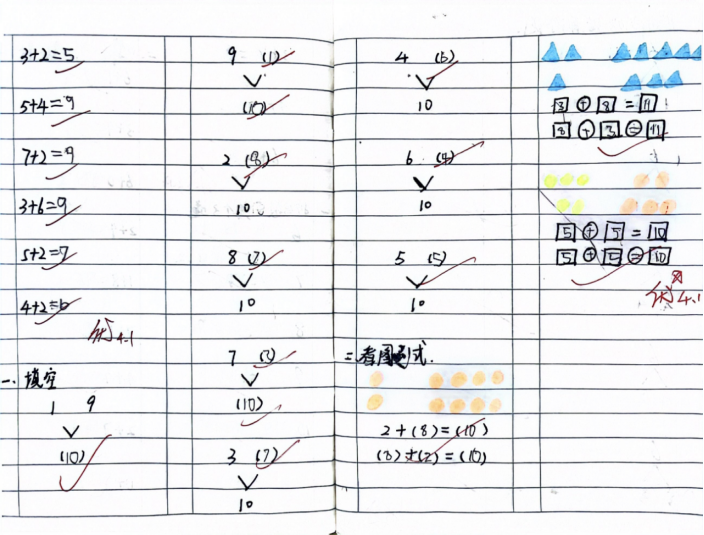 3+2=5
5+4=9
7+2=9
3+6=9
5+2=7
4+2=6
优 4.1
一.填空
1 9
(10)
9 (1)
(10)
2 (8)
10
8 (2)
10
7 (3)
(10)
3 (7)
10
4 (6)
10
6 (4)
10
5 (5)
10
二看图列式.
2+(8)=(10)
(8)+(2)=(10)
3+8=11
8+3=11
5+5=10
5+5=10
优 4.1